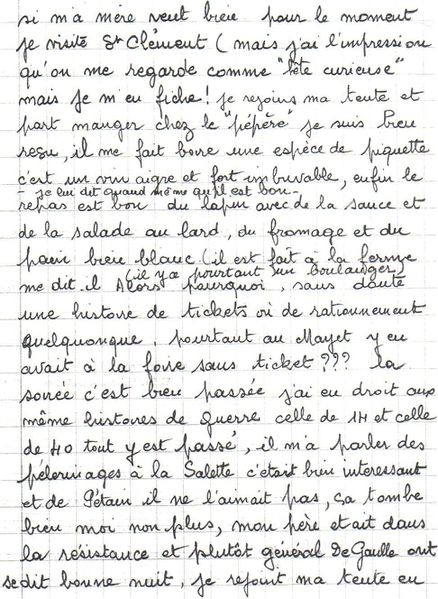 si m'a mère veut bien pour le moment
je visite St Clément (mais j'ai l'impression
qu'on me regarde comme "bête curieuse"
mais je m'en fiche! je rejoins ma tente et
part manger chez le "pépère" je suis bien
reçu, il me fait boire une espèce de piquette
c'est un vin aigre et fort imbuvable, enfin le
- je lui dit quand même qu'il est bon -
repas est bon du lapin avec de la sauce et
de la salade au lard, du fromage et du
pain bien blanc (il est fait à la ferme
(il y a pourtant un boulanger)
me dit-il Alors pourquoi, sans doute
une histoire de tickets où de rationnement
quelquonque, pourtant au Mayet y en
avait à la foire sans ticket??? la
soirée c'est bien passée j'ai eu droit aux
même histoires de guerre celle de 14 et celle
de 40 tout y est passé, il m'a parler des
pélerinages à la Salette c'était bien interessant
et de Pétain il ne l'aimait pas, ça tombe
bien moi non plus, mon père etait dans
la résistance et plutôt général De Gaulle ont
se dit bonne nuit, je rejoint ma tente en